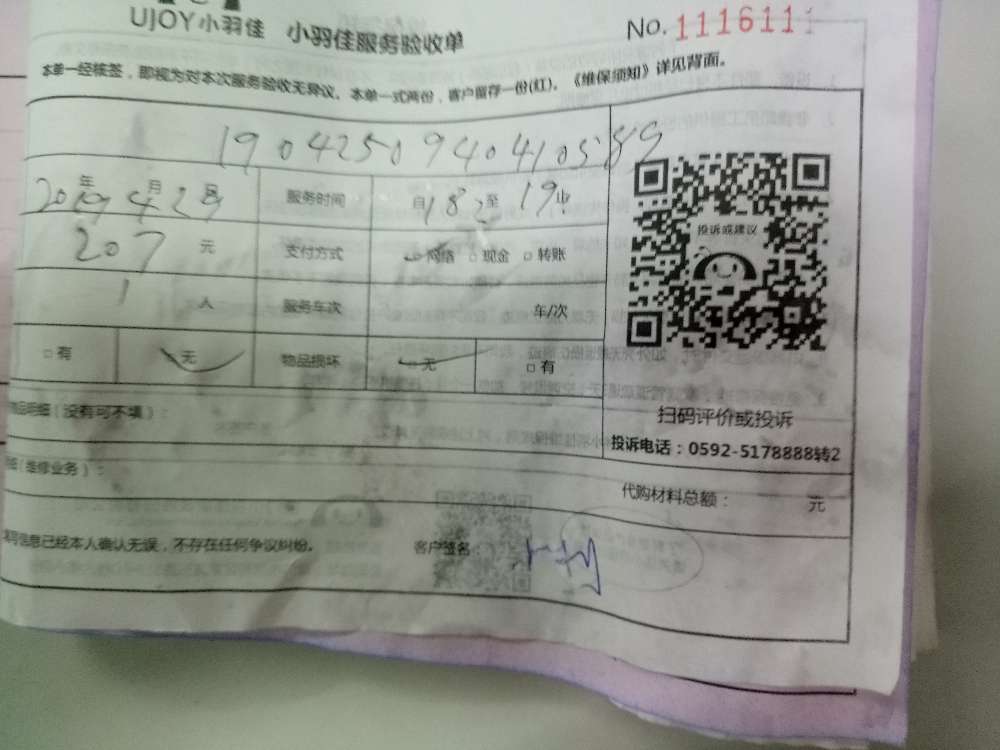 UJOY小羽佳 小羽佳服务验收单
No. 1116111
本单一经核签，即视为对本次服务验收无异议。本单一式两份，客户留存一份(红)。《维保须知》详见背面。
1904250940410589
2019年4月2 服务时间 自18 至19
207元 支付方式 网络 □现金 □转账
投诉或建议
1人 服务车次 车/次
□有 □无 物品损坏 □无 □有
扫码评价或投诉
品明细（没有可不填）：
投诉电话：0592-5178888转2
（维修业务）：
代购材料总额： 元
信息已经本人确认无误，不存在任何争议纠纷。 客户签名：